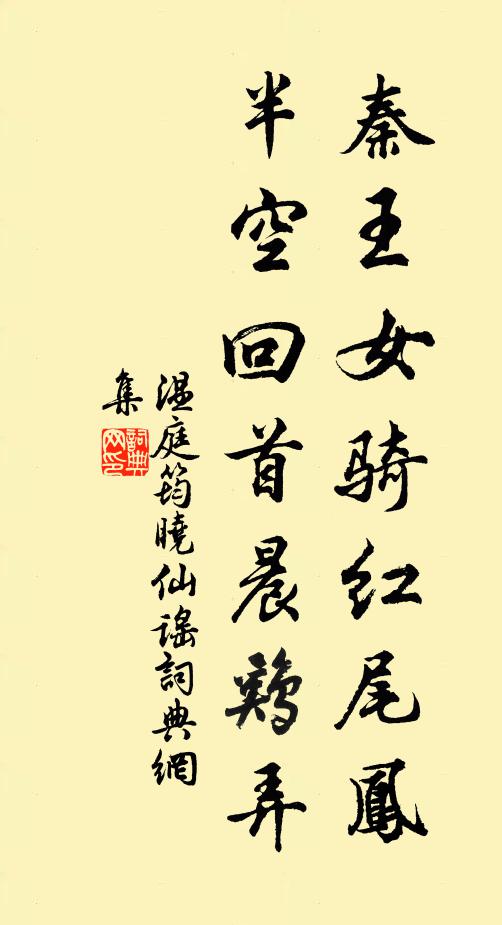 秦王女骑红尾鳳
半空回首晨鷄弄
温庭筠曉仙谣詞典網
集
詞典网印